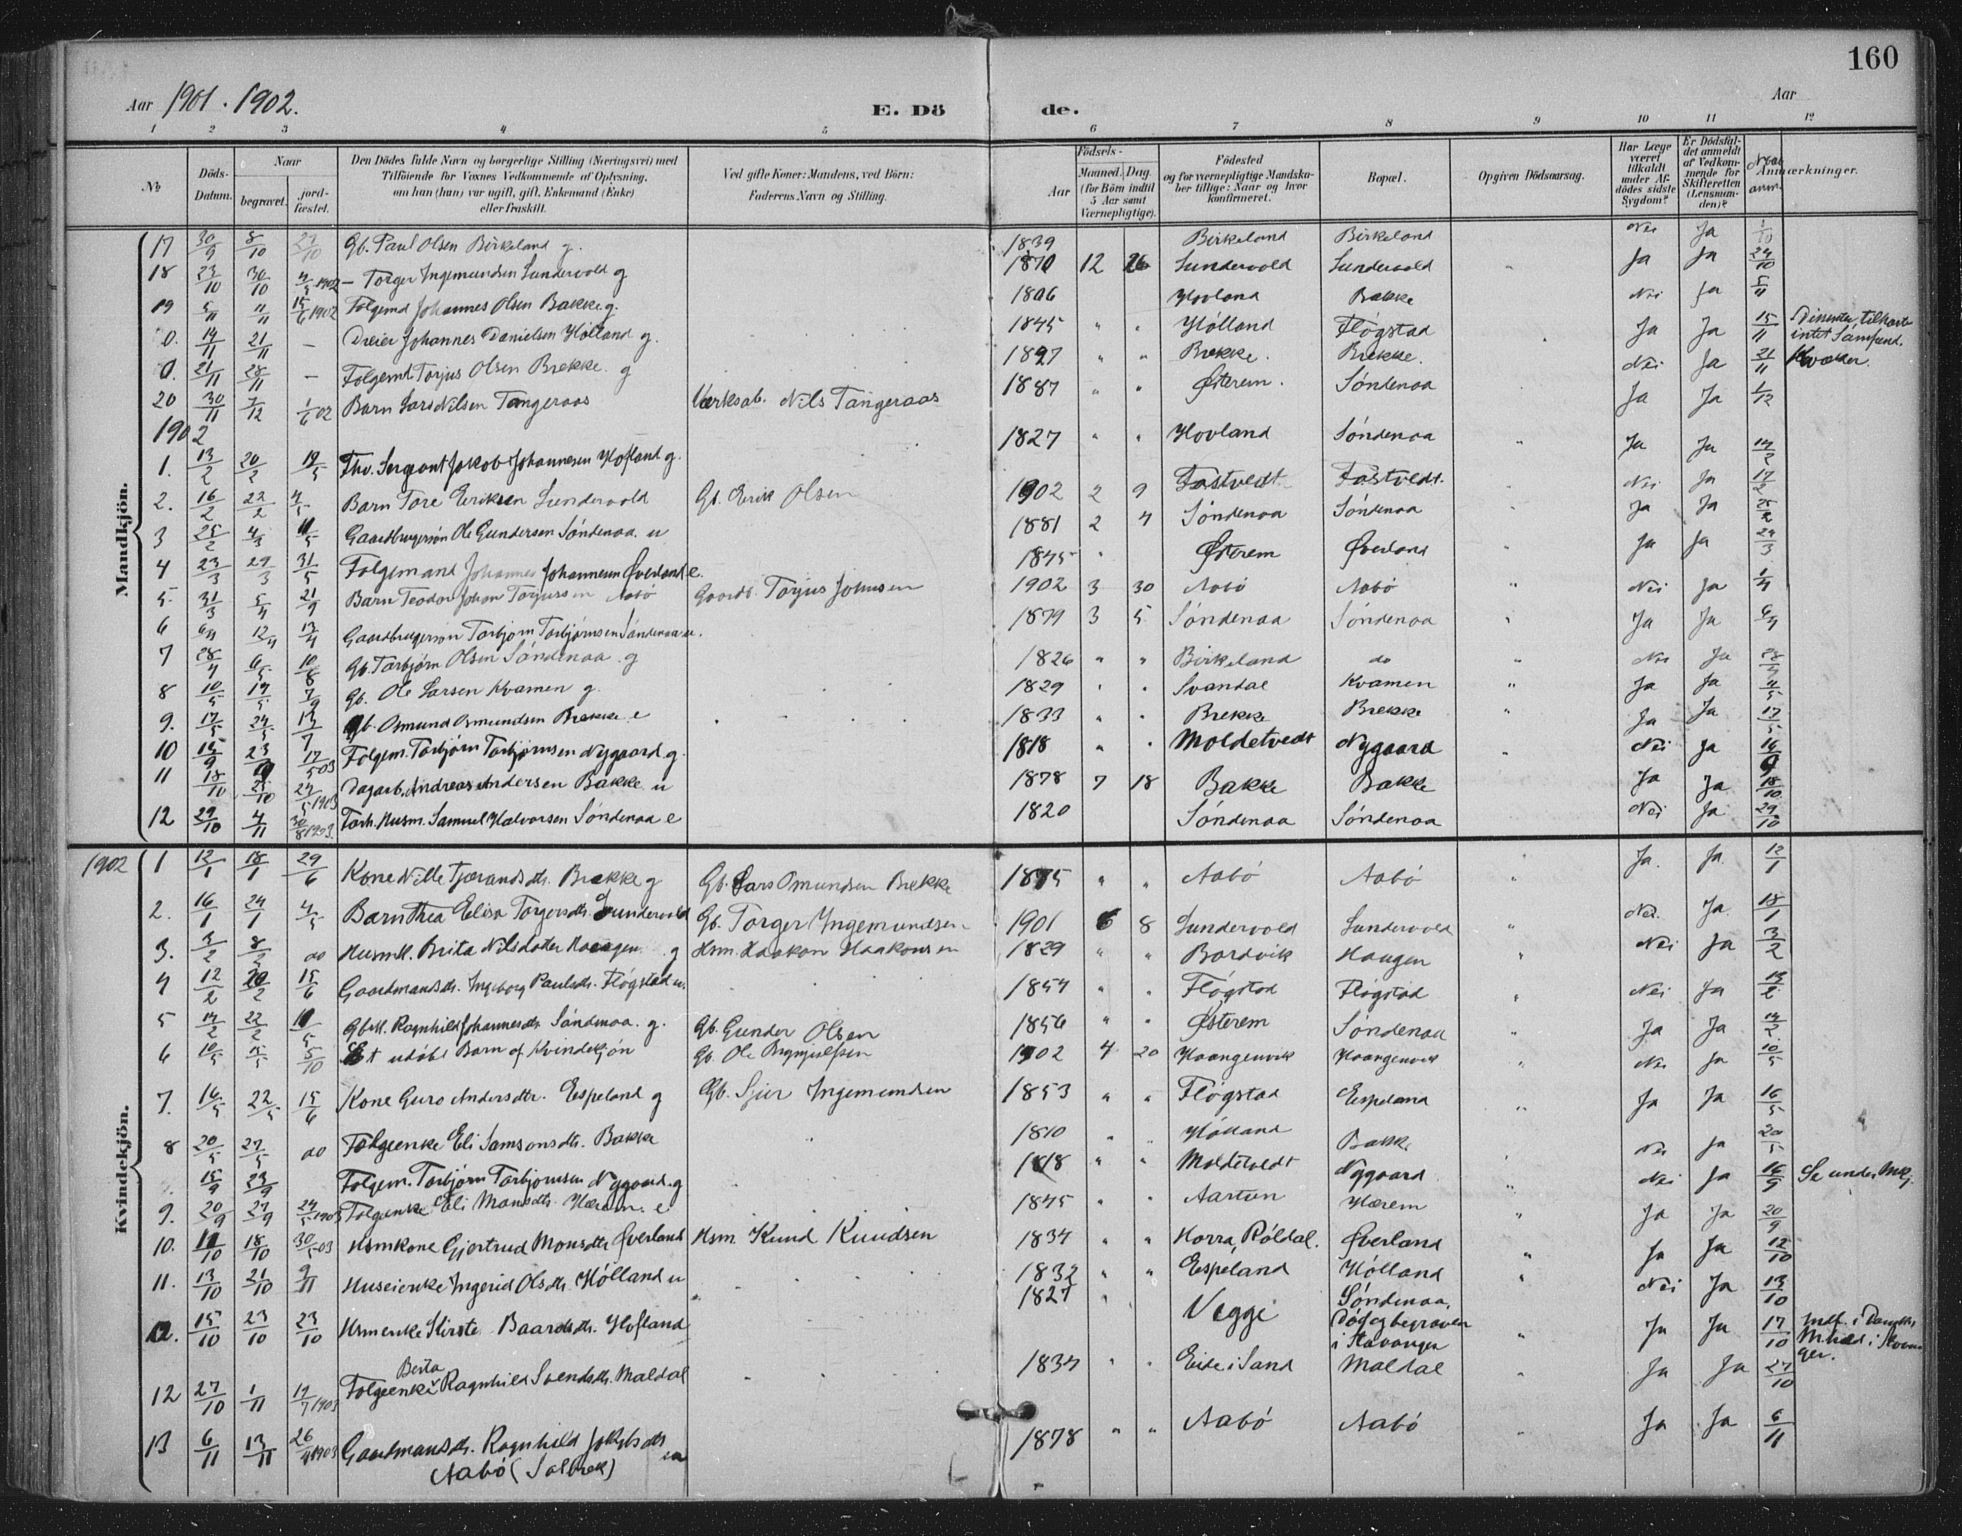 160
Aar 1901. 1902. E. Dö de. Aar
1 2 3 4 5 6 7 8 9 10 11 12
No Döds-Datum. Naar begravet. jordfæstet. Den Dödes fulde Navn og borgerlige Stilling (Næringsvei) med Tilföiende for Voxnes Vedkommende af Oplysning, om han (hun) var ugift, gift, Enkemand (Enke) eller fraskilt. Ved gifte Koner: Mandens, ved Börn: Faderens Navn og Stilling. Födsels- Aar Maaned. Dag. (for Börn indtil 5 Aar samt Værnepligtige). Födested og for værnepligtige Mandskaber tillige: Naar og hvor konfirmeret. Bopæl. Opgiven Dödsaarsag. Har Læge været tilkaldt under Afdödes sidste Sygdom? Er Dödsfaldet anmeldt af Vedkommende for Skifteretten (Lensmanden)? Naar anm. Anmærkninger.
Mandkjön.
17 30/9 8/10 27/10 Gb. Paul Olsen Birkeland g. 1839 Birkeland Birkeland Nei Ja 1/10
18 23/10 30/10 4/5 1902 - Torger Ingemundsen Sundervold g 1870 12 26 Sundervold Sundervold Ja Ja 24/10
19 5/11 11/11 15/6 1902 Folgemd Johannes Olsen Bakke g. 1806 Hovland Bakke Nei Ja 5/11
0. 14/11 21/11 — Dreier Johannes Danielsen Hølland g. 1845 " " Hølland Fløgstad Ja Ja 15/11 Dissenter, tilhørte intet Samfund.
0. 21/11 28/11 — Folgemd Torjus Olsen Brekke g 1827 " " Brekke. Brekke. Nei Ja 21/11 Kvæker.
20 30/11 7/12 1/6 02 Barn Lars Nilsen Tangeraas Værksab. Nils Tangeraas 1887 " " Østerem. Søndenaa Ja Ja 1/12
1902
1. 13/2 20/2 19/5 Fhv. Sergeant Jakob Johannesen Hofland g. 1827 " " Hovland Søndenaa Ja Ja 14/2
2. 16/2 22/2 4/5 Barn Tore Eriksen Sundervold Gb. Erik Olsen 1902 2 9 Fastvedt Fastvedt. Nei Ja 17/2
3 25/2 4/3 11/5 Gaardbrugersøn Ole Gundersen Søndenaa. u 1881 2 4 Søndenaa Søndenaa Ja Ja 25/2
4 23/3 29/3 31/5 Folgemand Johannes Johannesen Øverland e. 1845 " Østerem Øverland Ja Ja 24/3
5. 31/3 5/4 21/9 Barn Teodor Johan Torjussen Aabø Gaardb. Torjus Johnsen 1902 3 30 Aabø Aabø Nei Ja 1/4
6 6/4 12/4 13/4 Gaardbrugersøn Torbjørn Torbjørnsen Søndenaa u. 1879 3 5 Søndenaa Søndenaa Ja Ja 6/4
7 28/4 6/5 10/8 Gb. Torbjørn Olsen Søndenaa g 1826 " " Birkeland do Nei Ja 28/4
8 10/5 19/5 7/9 Gb. Ole Larsen Kvamen g. 1829 " " Svandal Kvamen Ja Ja
9. 17/5 24/5 13/7 Gb. Osmund Osmundsen Brekke e 1833 " " Brekke Brekke Ja Ja 17/5
10 15/9 23/9 17/5 03 Folgem. Torbjørn Torbjørnsen Nygaard g. 1818 " " Moldetvedt Nygaard Nei Ja 16/9
11 18/10 25/10 24/5 1903 Dagarb. Andreas Andersen Bakke u 1878 7 18 Bakke Bakke Ja Ja 18/10
12 29/10 4/11 30/8 1903. Forh. Husm. Samuel Halvorsen Søndenaa e 1820 Søndenaa Søndenaa Nei Ja 29/10
Kvindekjön.
1902 1 12/1 18/1 29/6 Kone Nille Tjærandsdtr. Brekke g Gb. Lars Omundsen Brekke 1875 " " Aabø Aabø Ja. Ja. 12/1
2. 16/1 24/1 4/5 Barn Thea Elisa Torgersdtr. Sundervold Gb. Torger Ingemundsen 1901 6 8 Sundervold Sundervold Nei. Ja. 18/1
3. 3/2 8/2 do Husmk. Brita Nilsdatter Haugen g Hsm Haakon Haakonsen 1829 " " Bordvik Haugen Nei Ja 3/2
4 12/2 20/2 15/6 Gaardmandsdtr. Ingeborg Paulsdtr. Fløgstad u. 1854 " " Fløgstad Fløgstad Nei Ja 13/2
5 14/2 22/2 11/5 Gbk. Ragnhild Johannesdtr. Søndenaa. g. Gb. Gunder Olsen 1856 " " Østerem Søndenaa Ja Ja 14/2
6 10/5 15/5 5/10 Et udøbt Barn af Kvindekjøn Gb. Ole Brynjulfsen 1902 4 20 Haangenvik Haangenvik Nei Ja 10/5
7. 16/5 22/5 15/6 Kone Guro Andersdtr. Espeland g Gb. Sjur Ingemundsen 1853 " " Fløgstad Espeland Ja Ja 16/5
8 20/5 27/5 do Folgeenke Eli Samsonsdtr. Bakke 1810 " " Hølland Bakke Nei Ja 20/5
15/9 23/9 Folgem. Torbjørn Torbjørnsen Nygaard g 1818 " " Moldetvedt Nygaard Nei Ja 16/9 Se under Mkj.
9. 20/9 27/9 24/5 1903 Folgeenke Eli Monsdtr. Hærem. e 1845 " " Aartun Hærem Ja Ja 20/9
10. 11/10 18/10 30/5 03 Hsmkone Gjertrud Monsdtr Øverland Hsm Knud Knudsen 1834 " " Horra, Røldal. Øverland Ja Ja 12/10
11. 13/10 21/10 9/11 Huseienke Ingerid Olsdtr. Hølland u 1832 " " Espeland Hølland Nei Ja 13/10
12. 15/10 23/10 23/10 Hsmenke Kirste Baardsdtr. Hofland 1827 " Veggi Søndenaa, Død og begraven i Stavanger Ja Ja 17/10
12 27/10 1/11 12/7 1903 Folgeenke Berta Ragnhild Svendsdtr. Maldal 1834 " " Eide i Sand Maldal Ja Ja 27/10
13 6/11 13/11 26/4 1903 Gaardmandsdtr. Ragnhild Jokobsdtr Aabø (Solbrek) 1878 " " Aabø Aabø Ja Ja 6/11